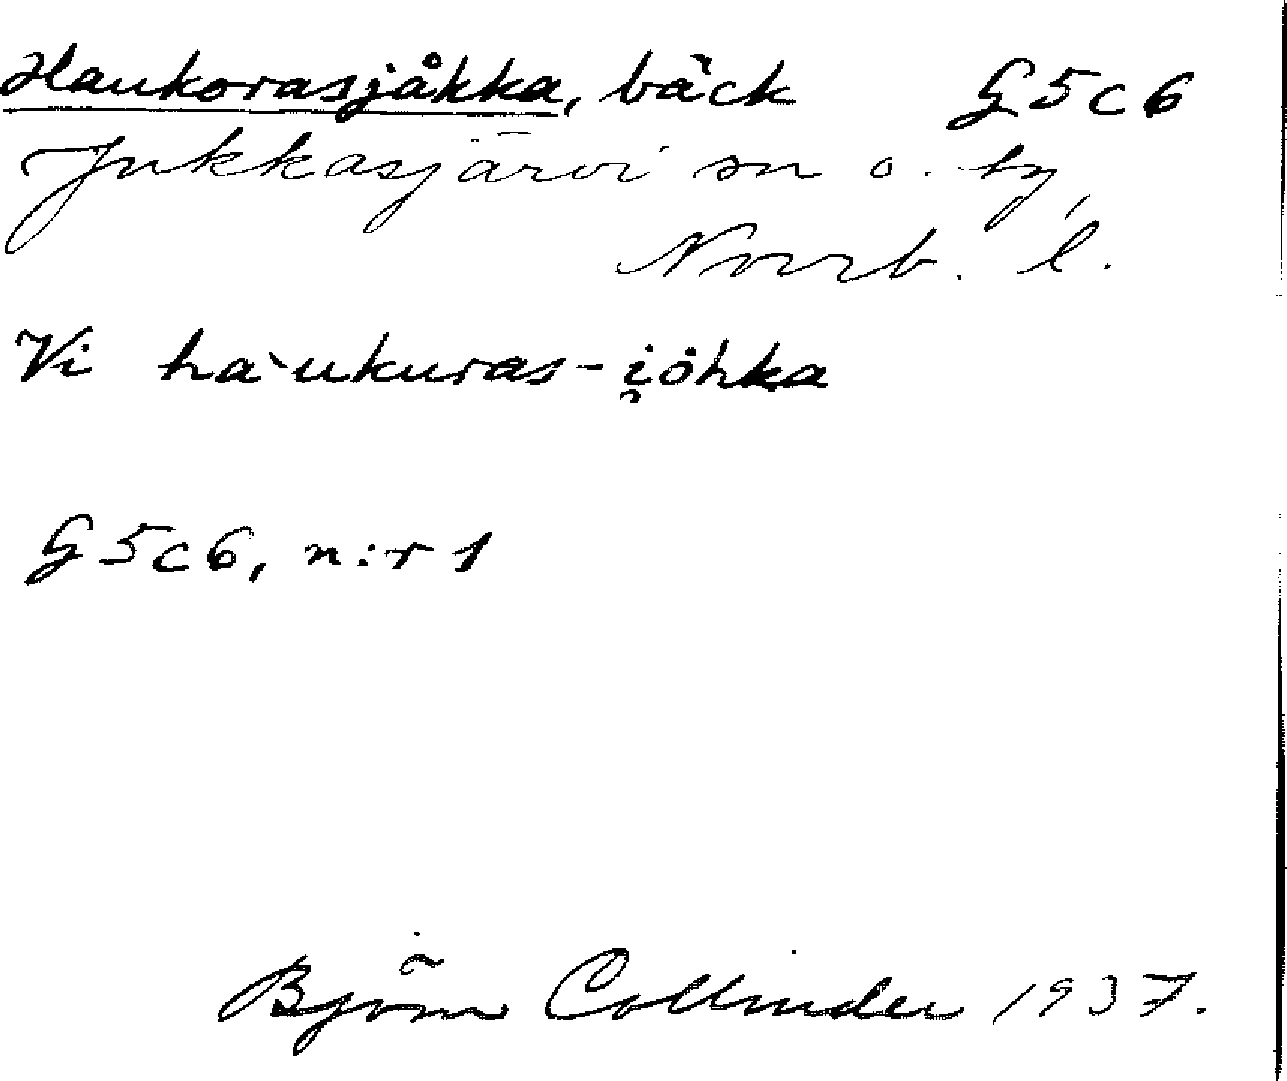 Haukorasjåkka, bäck G5c6
Jukkasjärvi sn o. by,
Norrb. l.
Vi hàukuras-i̯åhka
G5c6, n:r 1
Björn Collinder 1937.